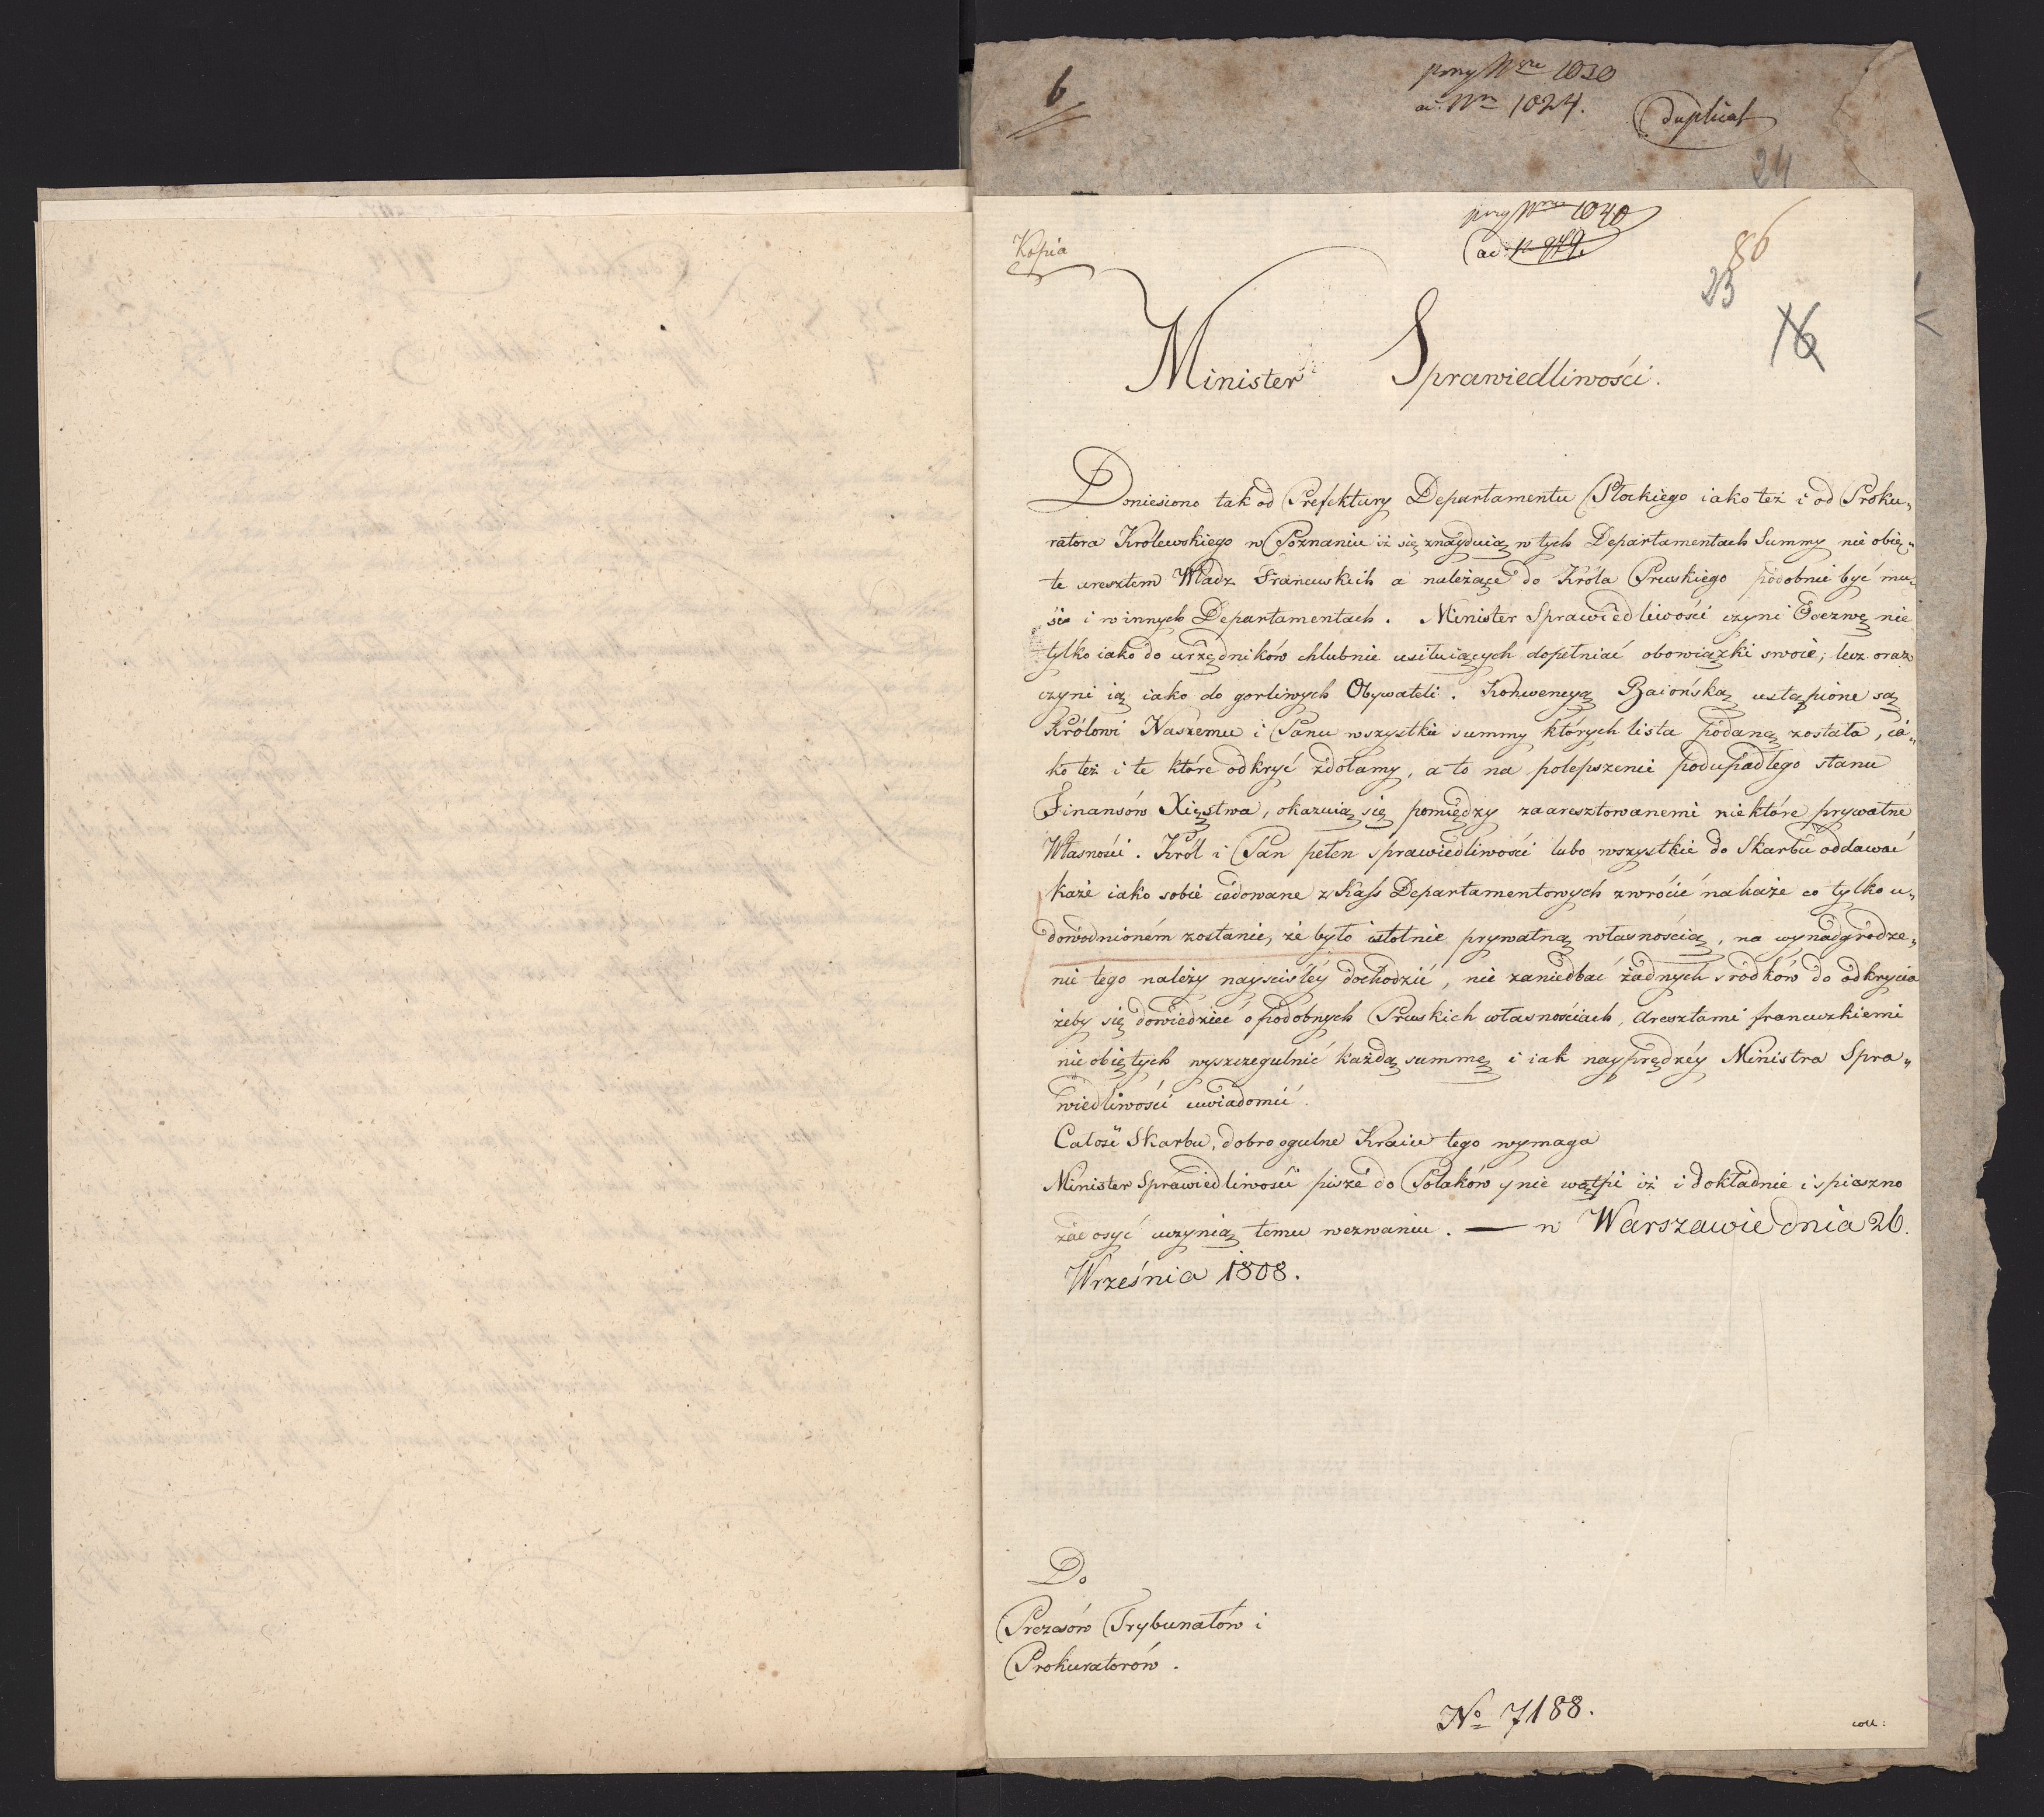 6
przy Nrze 1030
ad Nrm 1024.
duplicat
24
przy Nrze 1040
ad N 979.
Kopia
86
23
16
Minister Sprawiedliwości.
Doniesiono tak od Prefektury Departamentu Płockiego iako też i od Proku„
ratora Królewskiego w Poznaniu iż się znayduią w tych Departamentach Summy nie obię„
te aresztem Władz Francuskich a należące do Króla Pruskiego podobnie być mu„
si i w innych Departamentach. Minister Sprawiedliwości czyni Odezwę nie
tylko iako do urzędników chlubnie usiłuiących dopełniać obowiązki swoie, lecz oraz
czyni ią iako do gorliwych Obywateli. Konwencyą Baiońską ustąpione są
Królowi Naszemu i Panu wszystkie summy których lista podaną została, ia„
ko też i te które odkryć zdołamy, a to na polepszenie podupadłego stanu
Finansów Xięstwa, okazuią się pomiędzy zaaresztowanemi niektóre prywatne
Własności. Król i Pan pełen sprawiedliwości lubo wszystkie do Skarbu oddawać
każe iako sobie cedowane z Kass Departamentowych zwrócić nakaże co tylko u„
dowodnioném zostanie, że było istotnie prywatną własnością, na wynadgrodze„
nie tego należy nayściśléy dochodzić, nie zaniedbać żadnych srodków do odkrycia
żeby się dowiedzieć o podobnych Pruskich własnościach, Aresztami francuzkiemi
nie obiętych wyszczegulnić każdą summę i iak nayprędzéy Ministra Spra„
wiedliwości uwiadomić.
Całość Skarbu, dobro ogulne Kraiu tego wymaga
Minister Sprawiedliwości pisze do Polaków y nie wątpi iż i dokładnie i spieszno
zadosyć uczynią temu wezwaniu. — w Warszawie dnia 26.
Września 1808.
Do
Prezesów Trybunałów i
Prokuratorów.
No 7188.
coll: